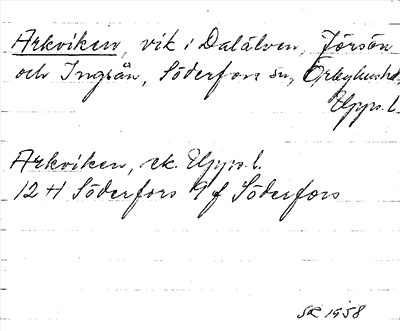 Arkviken, vik i Dalälven, Jörsön
och Ingsån, Söderfors sn, Örbyhus hd,
Upps. l.
Arkviken, ek. Upps. l.
12 H Söderfors 9 f Söderfors
1958